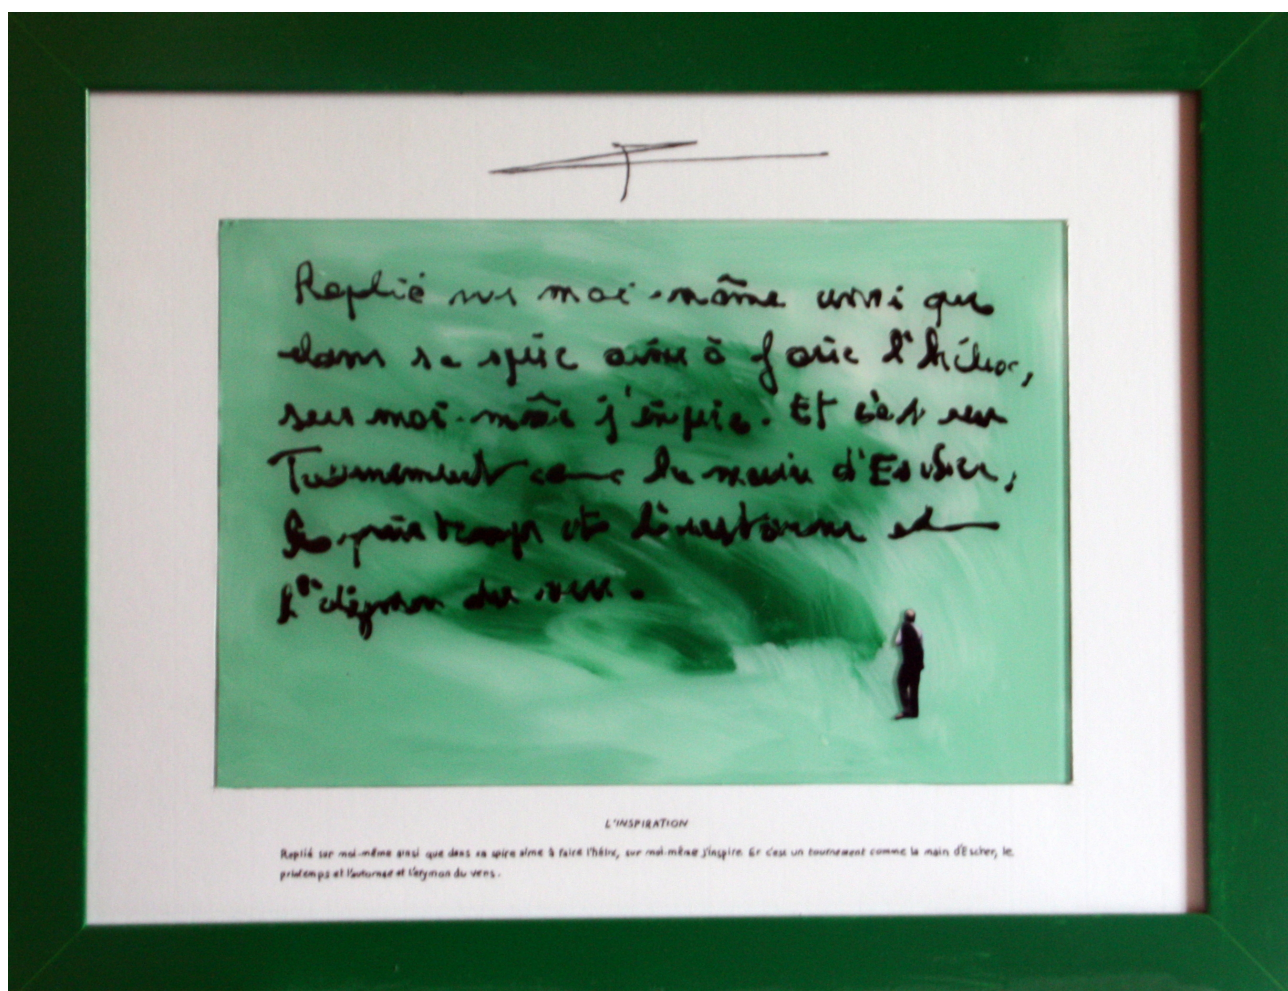 Replié sur moi-même ainsi que
dans sa spire aime à faire l'hélix,
sur moi-même j'inspire. Et c'est un
Tournement comme la main d'Escher,
le printemps et l'automne et
l'étymon du vers.
L'INSPIRATION
Replié sur moi-même ainsi que dans sa spire aime à faire l'hélix, sur moi-même j'inspire. Et c'est un tournement comme la main d'Escher, le
printemps et l'automne et l'étymon du vers.